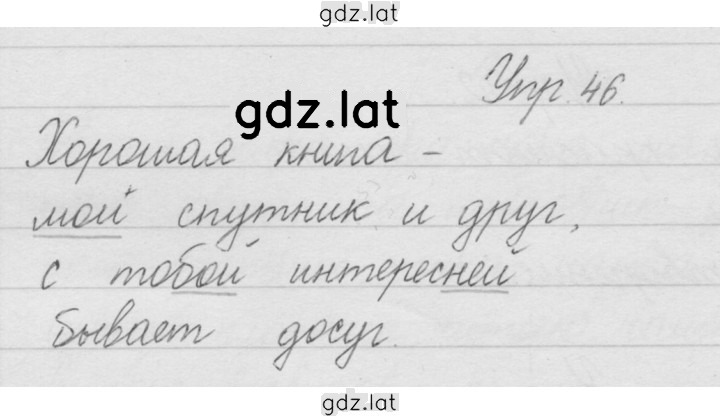 gdz.lat
Упр. 46.
gdz.lat
Хорошая книга –
мой спутник и друг,
с тобой интересней
бывает досуг.
gdz.lat